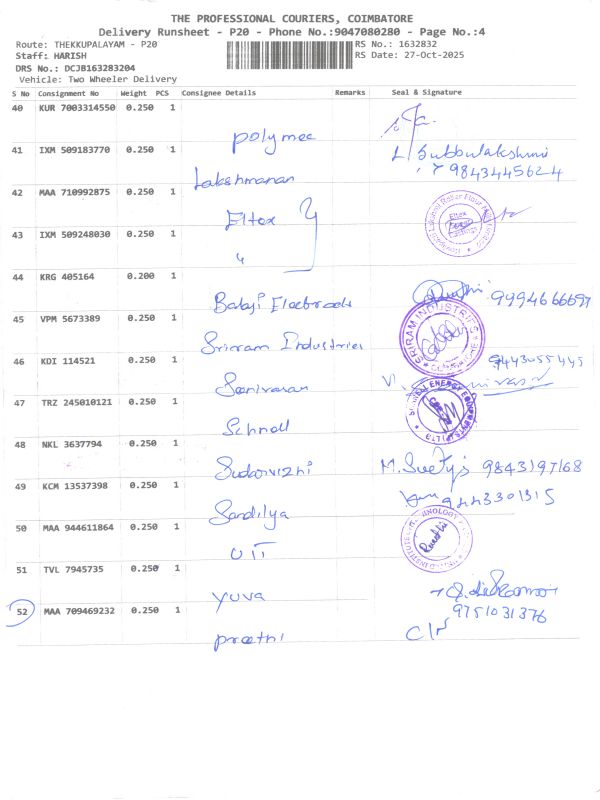 THE PROFESSIONAL COURIERS, COIMBATORE
Delivery Runsheet - P20 - Phone No.:9047080280 - Page No.:4
Route: THEKKUPALAYAM - P20 RS No.: 1632832
Staff: HARISH RS Date: 27-Oct-2025
DRS No.: DCJB163283204
Vehicle: Two Wheeler Delivery
S No Consignment No Weight PCS Consignee Details Remarks Seal & Signature
40 KUR 7003314550 0.250 1
polymec
41 IXM 509183770 0.250 1 L Subbulakshmi
9843445624
Lakshmanan
42 MAA 710992875 0.250 1
Eltex
43 IXM 509248030 0.250 1
"
44 KRG 405164 0.200 1
Balaji Electrode 9994666697
45 VPM 5673389 0.250 1 SRIRAM INDUSTRIES
Sriram Industries
46 KDI 114521 0.250 1 9443055445
Sanivasan
47 TRZ 245010121 0.250 1 ENERGY EQUIPMENTS
Schnell
48 NKL 3637794 0.250 1
Sudarvizhi M. 9843197168
49 KCM 13537398 0.250 1 9443301315
Sandilya
50 MAA 944611864 0.250 1
UIT
51 TVL 7945735 0.250 1
yuva
52 MAA 709469232 0.250 1 9751031376
preethi C/N